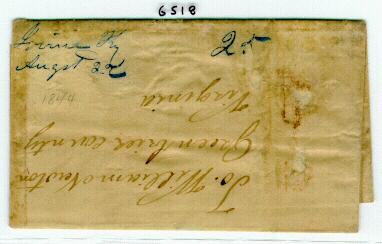 6518
Irvine Ky
Augst
25
1844
To. William Newton
Greenbrier county
Virginia